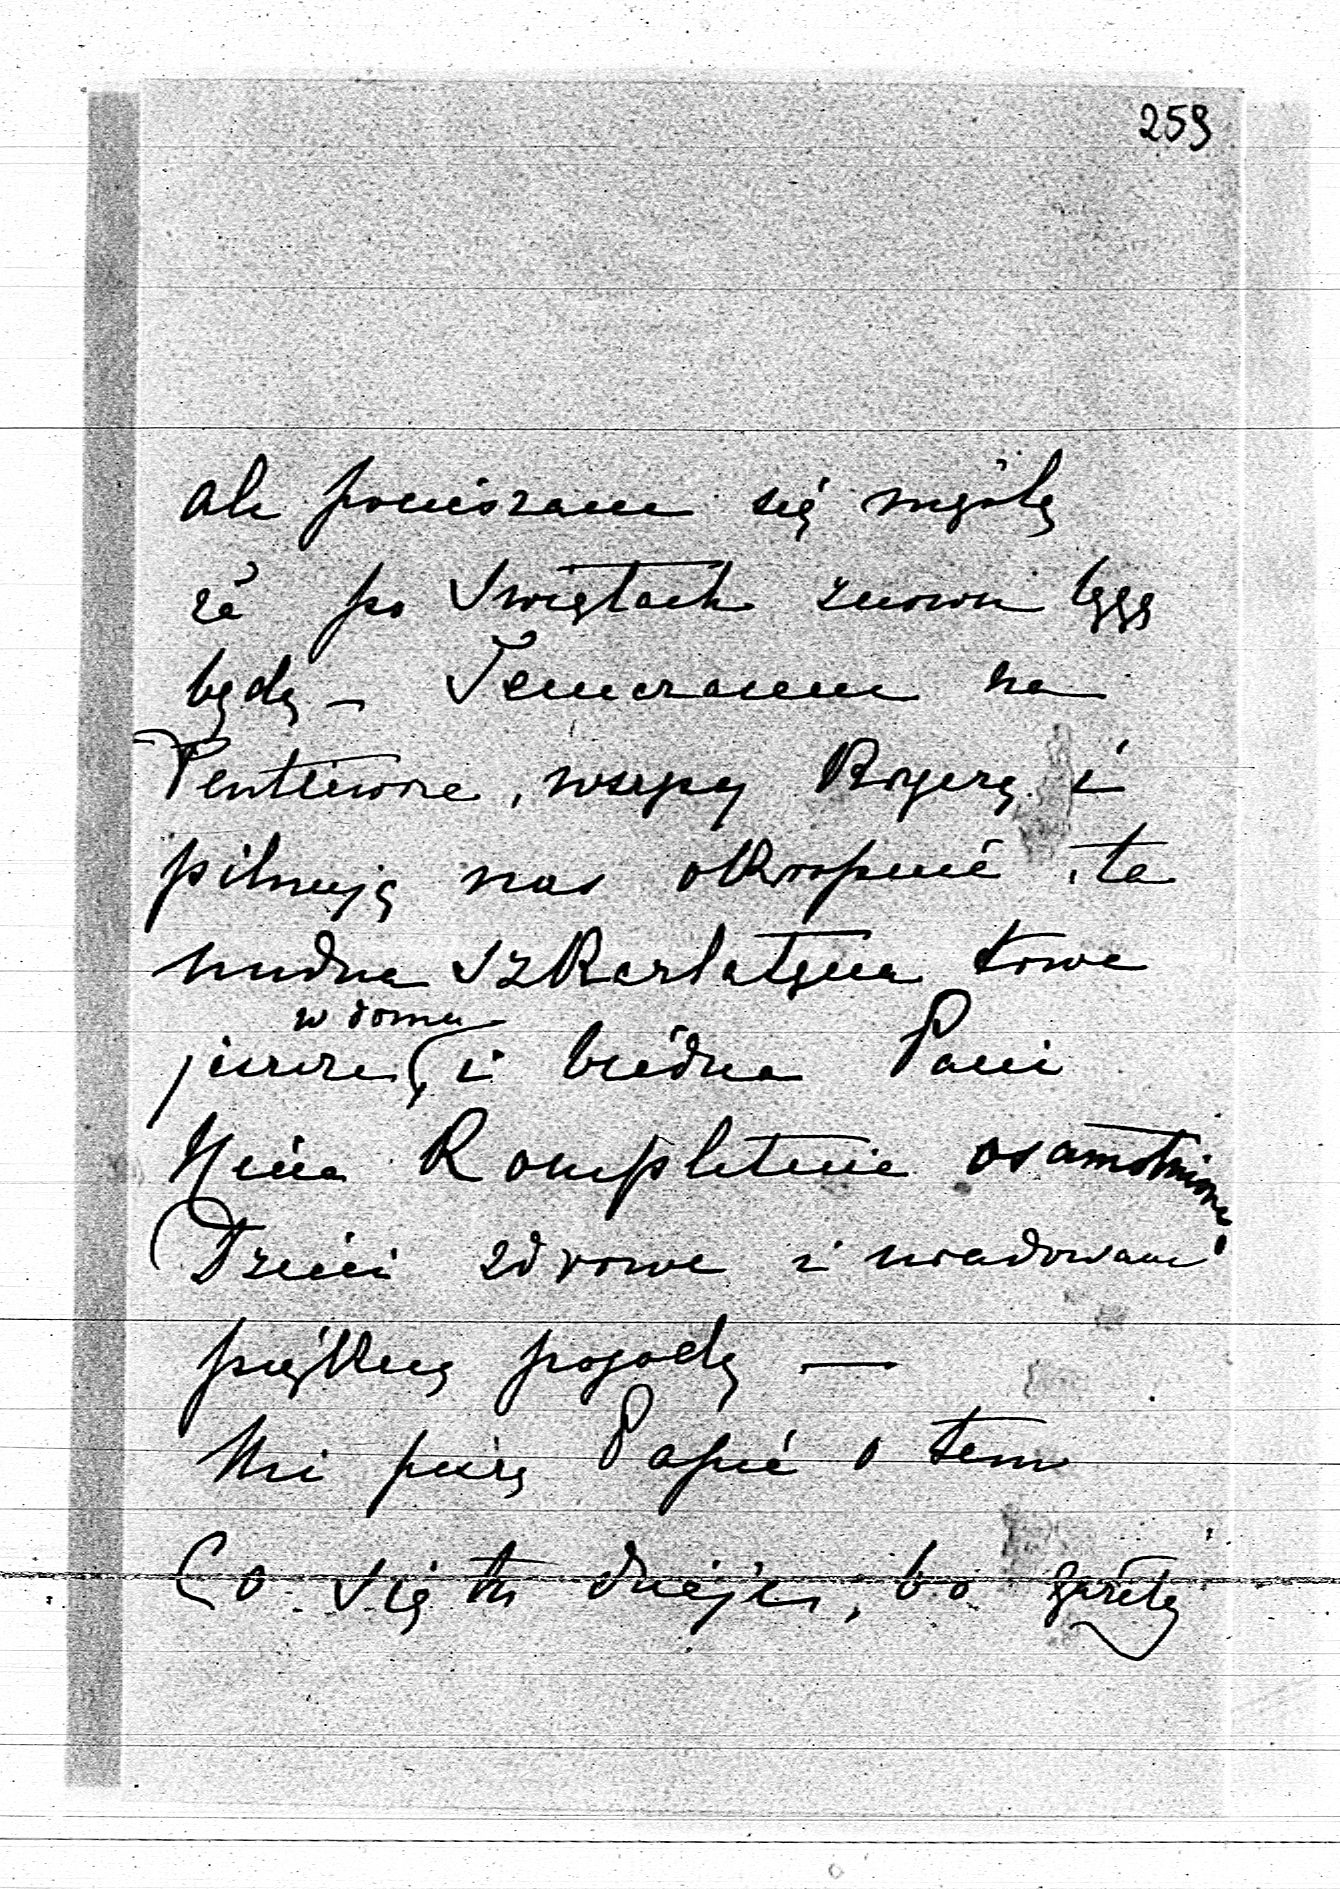 259
ale pocieszam się myślą
że po Świętach znowu tęgą
będę – Tymczasem na
Pentiewore, wszyscy kryczą i
pilnują nas okropnie, ta
nudna szkarlatyna trwa
w domu
jeszcze, i biedna Pani
Nina kompletnie osamotniona
Dzieci zdrowe i uradowani
piękną pogodą —
Nie piszę Papie o tem
Co się tu dzieje, bo gazety